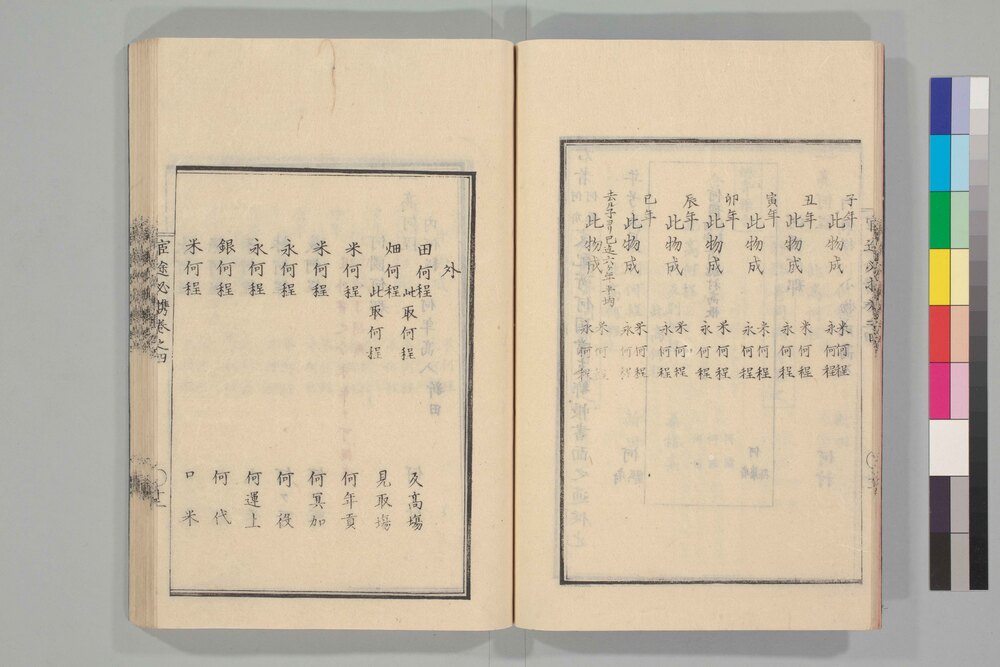 子年
此物成
米何程
永何程
丑年
此物成
米何程
永何程
寅年
此物成
米何程
永何程
卯年
此物成
米何程
永何程
辰年
此物成
米何程
永何程
巳年
此物成
米何程
永何程
去ル子ゟ巳迄六ケ年平均
此物成
米何程
永何程
外
田何程
此取何程
反高場
畑何程
此取何程
見取場
米何程
何年貢
米何程
何冥加
永何程
何役
永何程
何運上
銀何程
何代
米何程
口米
宦途必携巻之四